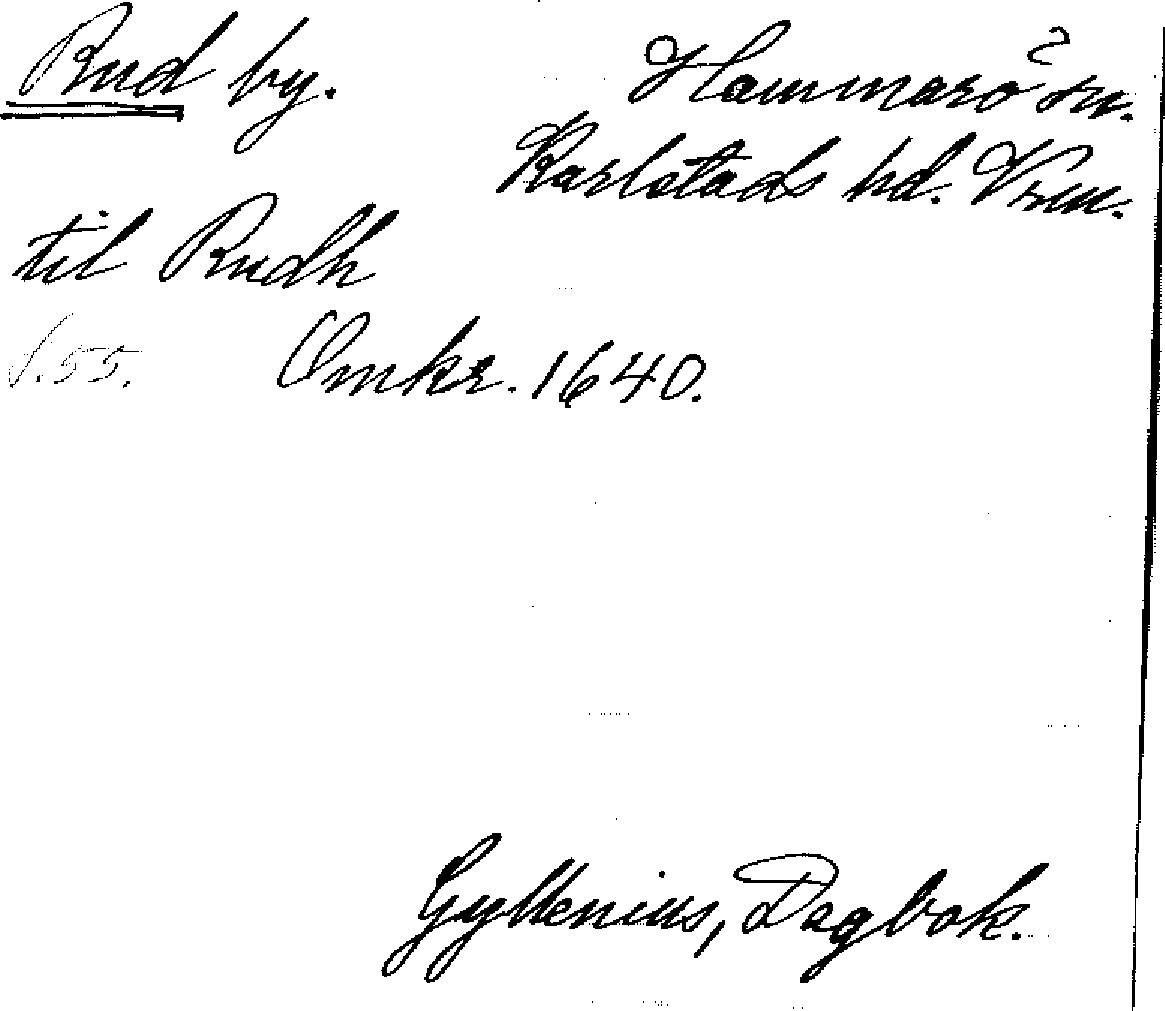 Rud by. Hammarö sn.
Karlstads hd. Vrm.
til Rudh
S. 55. Omkr. 1640.
Gyllenius, Dagbok.